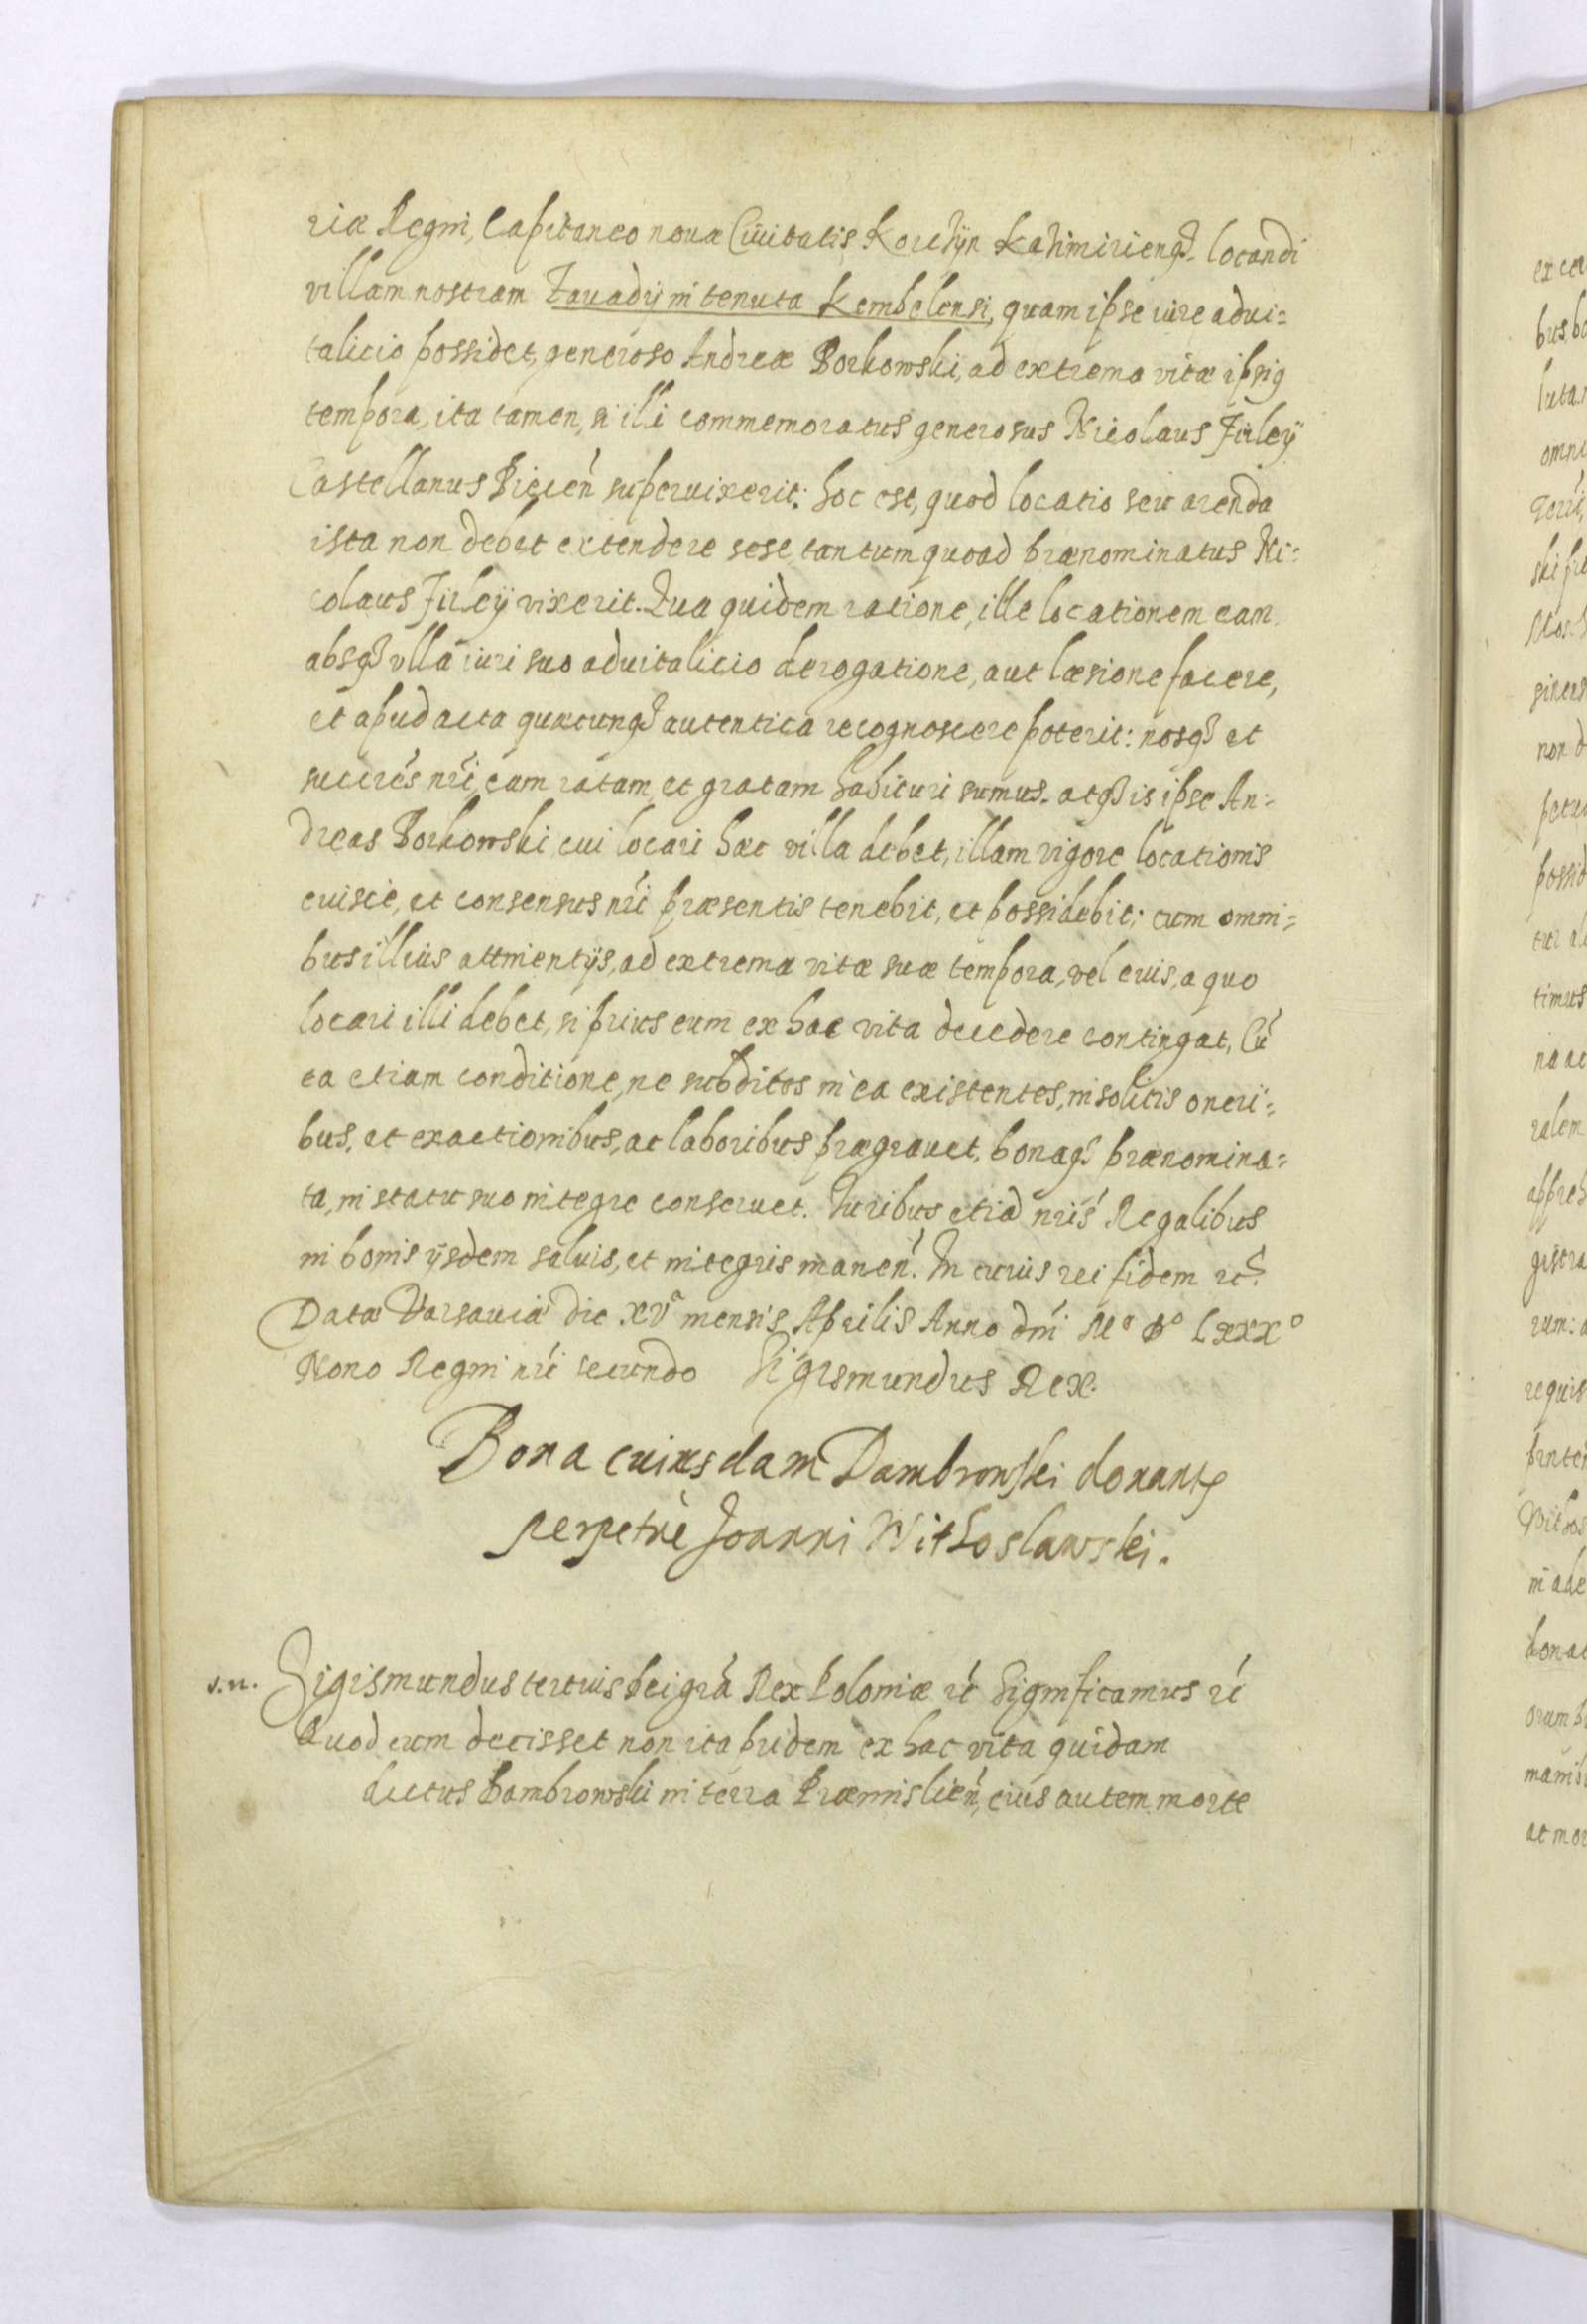 riæ Regni, Capitaneo nouæ Ciuitatis Korchÿn Kazimirienq₃ locandi
villam nostram Zauadÿ in tenuta Kembelensi, quam ipse iure adui=
talicio possidet, generoso Andreæ Borkowski, ad extrema vitæ ipsius
tempora, ita tamen, si illi commemoratus generosus Nicolaus Firleÿ
Castellanus Biecen̄ superuixerit: hoc est, quod locatio seu arenda
ista non debet extendere sese, tantum quoad prænominatus Ni=
colaus Firleÿ vixerit. Qua quidem ratione, ille locationem eam
absq₃ vlla iuri suo aduitalicio derogatione, aut læsione facere,
et apud acta quæcunq₃ autentica recognoscere poterit: nosq₃ et
succrēs nrī, eam ratam et gratam habituri sumus. atq₃ is ipse An=
dreas Borkowski, cui locari hæc villa debet, illam vigore locationis
eiusce, et consensus nrī præsentis tenebit, et possidebit: cum omni=
bus illius attinentÿs, ad extrema vitæ suæ tempora, vel eius, a quo
locari illi debet, si prius eum ex hac vita decedere contingat, Cū
ea etiam conditione, ne subditos in ea existentes, insolitis oneri=
bus, et exactionibus, ac laboribus prægrauet, bonaq₃ prænomina=
ta, in statu suo integre conseruet. Iuribus etiā nrīs Regalibus
in bonis ÿsdem saluis, et integris manen̄. In cuius rei fidem rc̄.
Datæ Varsauiæ die XVᵃ mensis Aprilis Anno dnī Mº Dº Lxxxº
Nono Regni nrī secundo Sigismundus Rex.
Bona cuiusdam Dambrowski donantur
perpetuè Joanni Withoslawski.
s.n. Sigismundus tertius Dei grā Rex Poloniæ rc̄ Significamus rc̄
Quod cum decisset non ita pridem ex hac vita quidam
dictus Dambrowski in terra Præmislien̄, eius autem morte